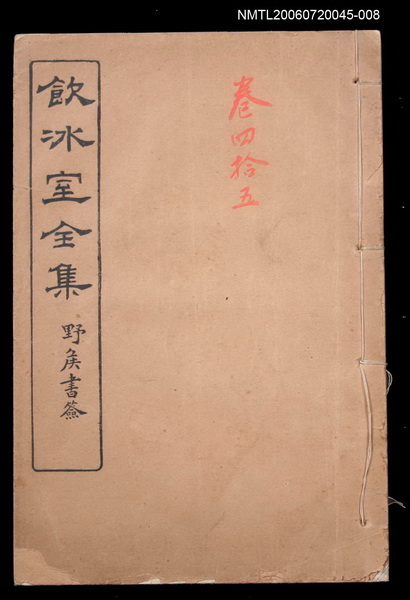 NMTL20060720045-008
卷四拾五
飲冰室全集
野矦書簽